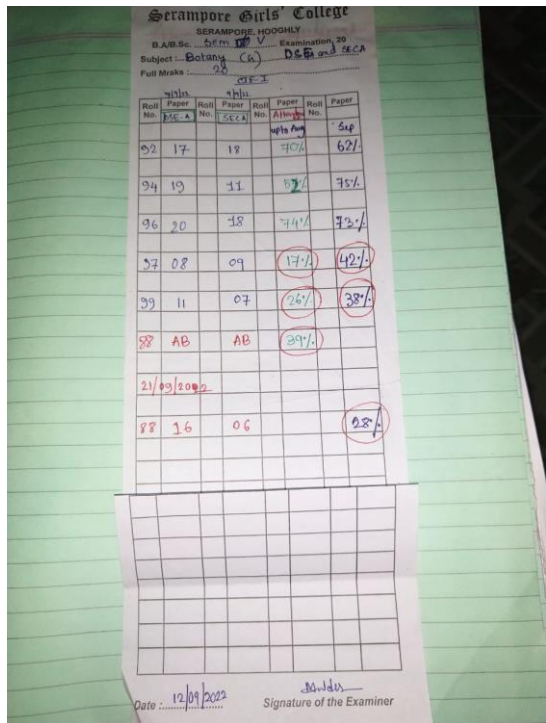 Serampore Girls' College
SERAMPORE, HOOGHLY
B.A/B.Sc. Sem V Examination, 20
Subject : Botany (G) DSEA and SECA
Full Mraks : 20
Roll No. Paper Roll No. Paper Roll No. Paper Roll No. Paper
DSE-A SECA
upto Aug Sep
92 17 18 70% 62%
94 19 11 75%
96 20 18 74% 73%
97 08 09 17% 42%
99 11 07 26% 38%
88 AB AB 39%
21/09/2022
88 16 06 28%
Date : 12/09/2022 Signature of the Examiner